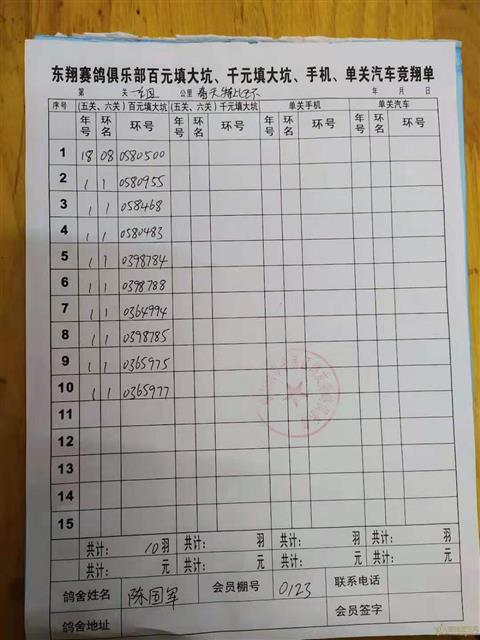 东翔赛鸽俱乐部百元填大坑、千元填大坑、手机、单关汽车竞翔单
第 关 公里 年 月 日
序号 (五关、六关)百元填大坑 (五关、六关)千元填大坑 单关手机 单关汽车
年号 环名 环号 年号 环名 环号 年号 环名 环号 年号 环名 环号
1 18 08 0580500
2 \ \ 0580955
3 \ \ 058468
4 \ \ 0580483
5 \ \ 0398784
6 \ \ 0398788
7 \ \ 0364994
8 \ \ 0398785
9 \ \ 0365975
10 \ \ 0365977
11
12
13
14
15
共计: 10羽 共计: 羽 共计: 羽 共计: 羽
共计: 元 共计: 元 共计: 元 共计: 元
鸽舍姓名 陈国军 会员棚号 0123 联系电话
鸽舍地址 会员签字